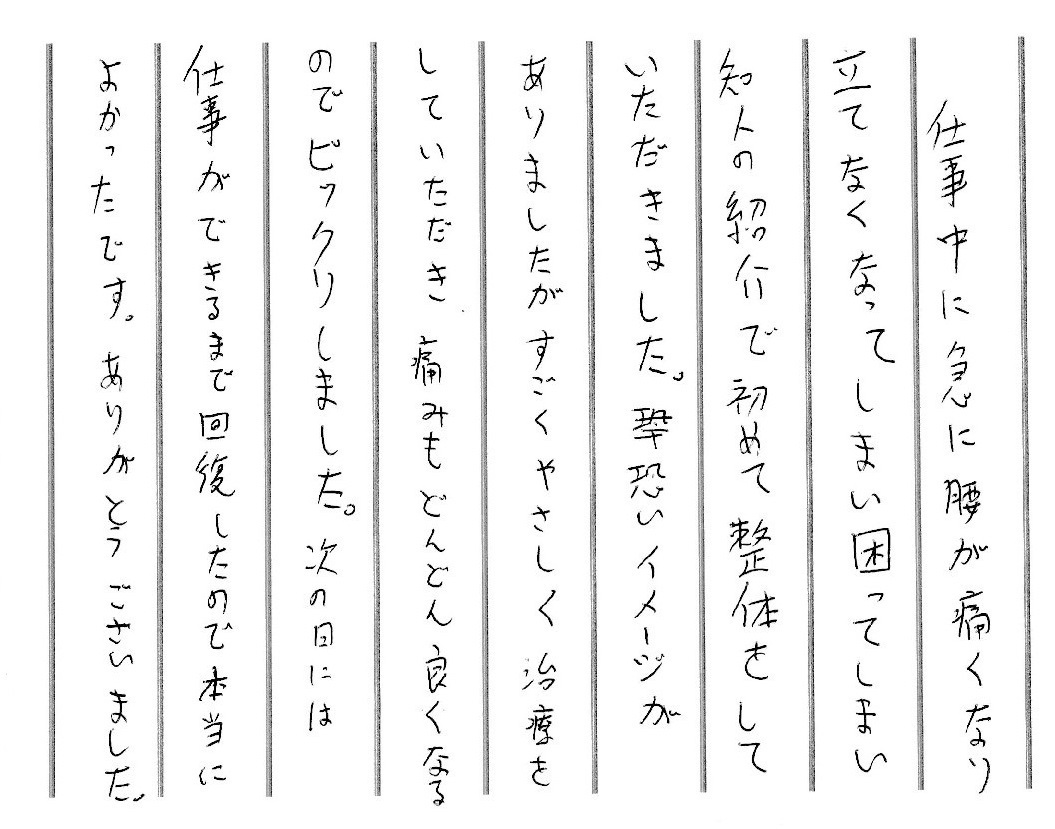 仕事中に急に腰が痛くなり
立てなくなってしまい困ってしまい
知人の紹介で初めて整体をして
いただきました。恐いイメージが
ありましたがすごくやさしく治療を
していただき痛みもどんどん良くなる
のでビックリしました。次の日には
仕事ができるまで回復したので本当に
よかったです。ありがとうございました。